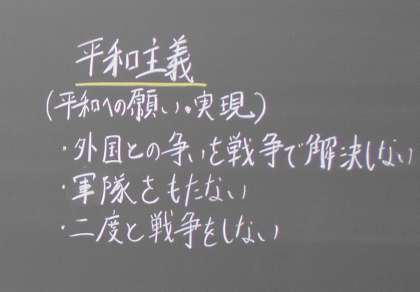 平和主義
(平和への願い・実現)
・外国との争いを戦争で解決しない
・軍隊をもたない
・二度と戦争をしない